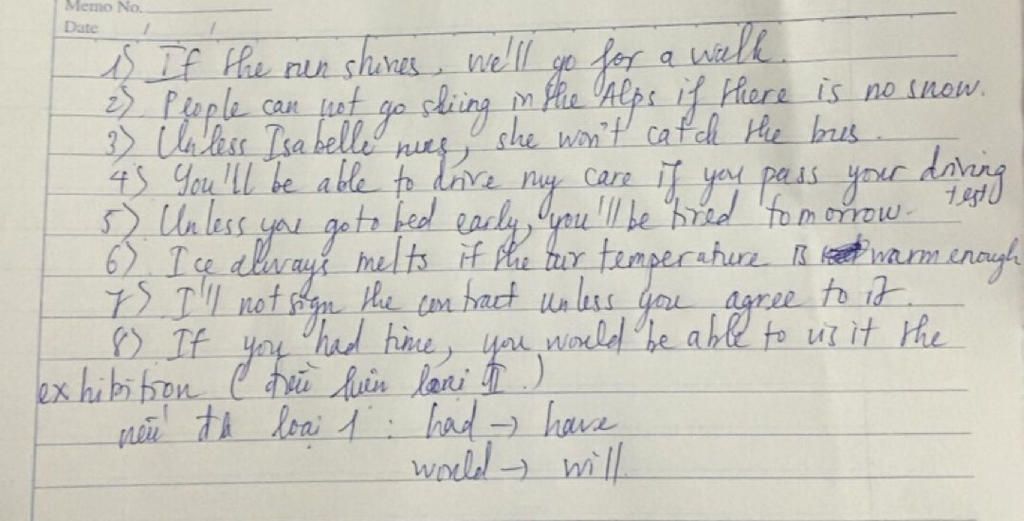 Memo No.
Date / /
1) If the sun shines, we'll go for a walk.
2) People can not go skiing in the Alps if there is no snow.
3) Unless Isabelle runs, she won't catch the bus.
4) You'll be able to drive my care if you pass your driving test
5) Unless you go to bed early, you'll be tired tomorrow.
6) Ice always melts if the air temperature is warm enough
7) I'll not sign the contract unless you agree to it.
8) If you had time, you would be able to visit the
exhibition (điều kiện loại II.)
nếu đk loại 1 : had → have
would → will